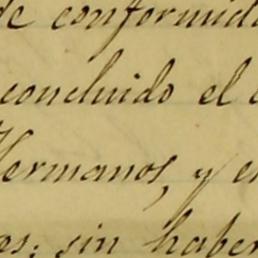 de conformida
concluido el
Hermanos, y e
as; sin haber